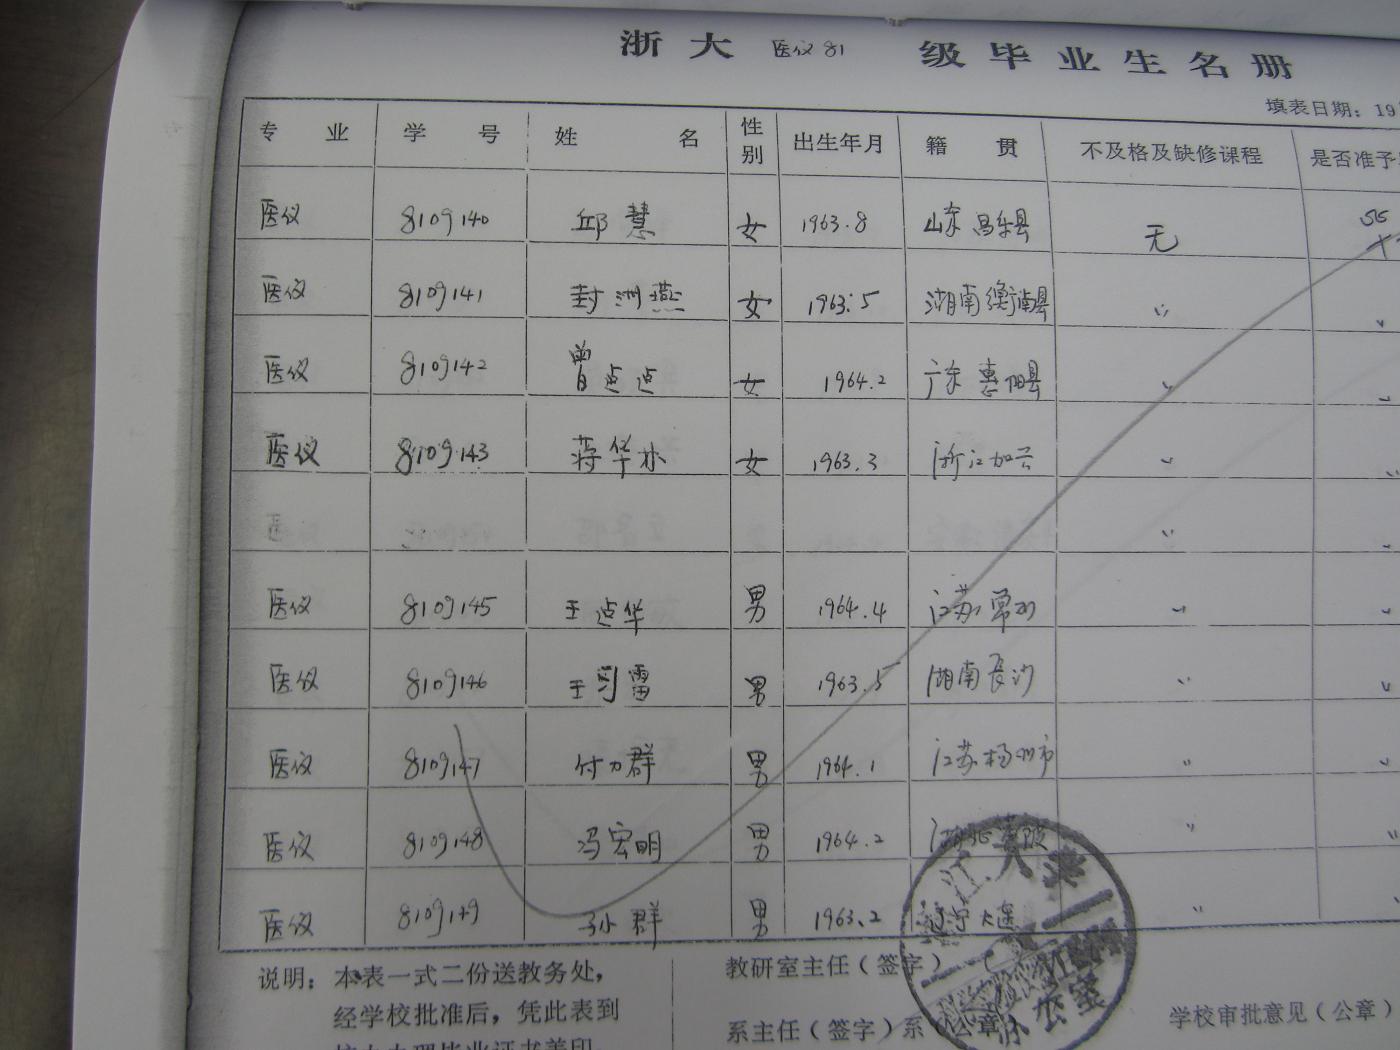 浙大 医仪81 级毕业生名册
填表日期：19
专业 学号 姓名 性别 出生年月 籍贯 不及格及缺修课程 是否准予
医仪 8109140 邱慧 女 1963.8 山东昌乐县 无
医仪 8109141 封洲燕 女 1963.5 湖南衡南县 〃
医仪 8109142 曾点点 女 1964.2 广东惠阳县 〃
医仪 8109143 蒋华 女 1963.3 浙江加兴 〃
〃
医仪 8109145 王点华 男 1964.4 江苏常州 〃
医仪 8109146 王 雷 男 1963.5 湖南长沙 〃
医仪 8109147 付力群 男 1964.1 江苏杨州市 〃
医仪 8109148 冯宏明 男 1964.2 〃
医仪 8109149 孙群 男 1963.2 辽宁大连 〃
说明：本表一式二份送教务处，
经学校批准后，凭此表到
教研室主任（签字）
系主任（签字）系（公章）
学校审批意见（公章）